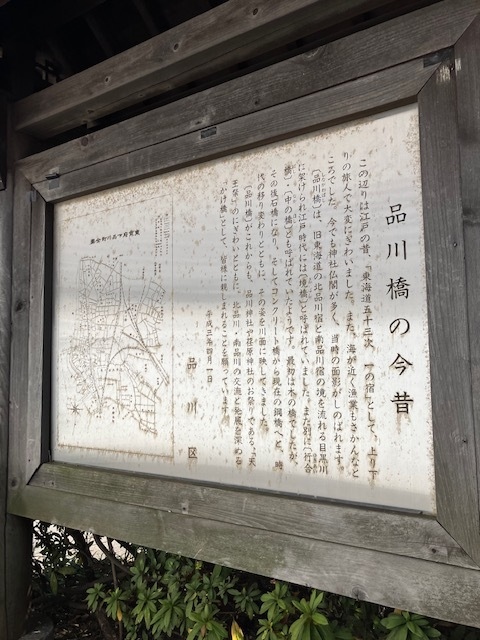 品川橋の今昔
この辺りは江戸の昔、「東海道五十三次 一の宿」として、上り下
りの旅人で大変にぎわいました。また、海が近く漁業もさかんなと
ころでした。今でも神社仏閣が多く、当時の面影がしのばれます。
〔品川橋〕は、旧東海道の北品川宿と南品川宿の境を流れる目黒川
に架けられ江戸時代には〔境橋〕と呼ばれていました。また別に〔行合
橋〕・〔中の橋〕とも呼ばれていたようです。最初は木の橋でしたが、
その後石橋になり、そしてコンクリート橋から現在の鋼橋へと、時
代の移り変わりとともに、その姿を川面に映してきました。
〔品川橋〕がこれからも、品川神社や荏原神社のお祭りである、「天
王祭」のにぎわいとともに、北品川・南品川の交流と発展を深める
「かけ橋」として、皆様に親しまれることを願っています。
平成三年四月一日
品川区
東京府下品川町全圖